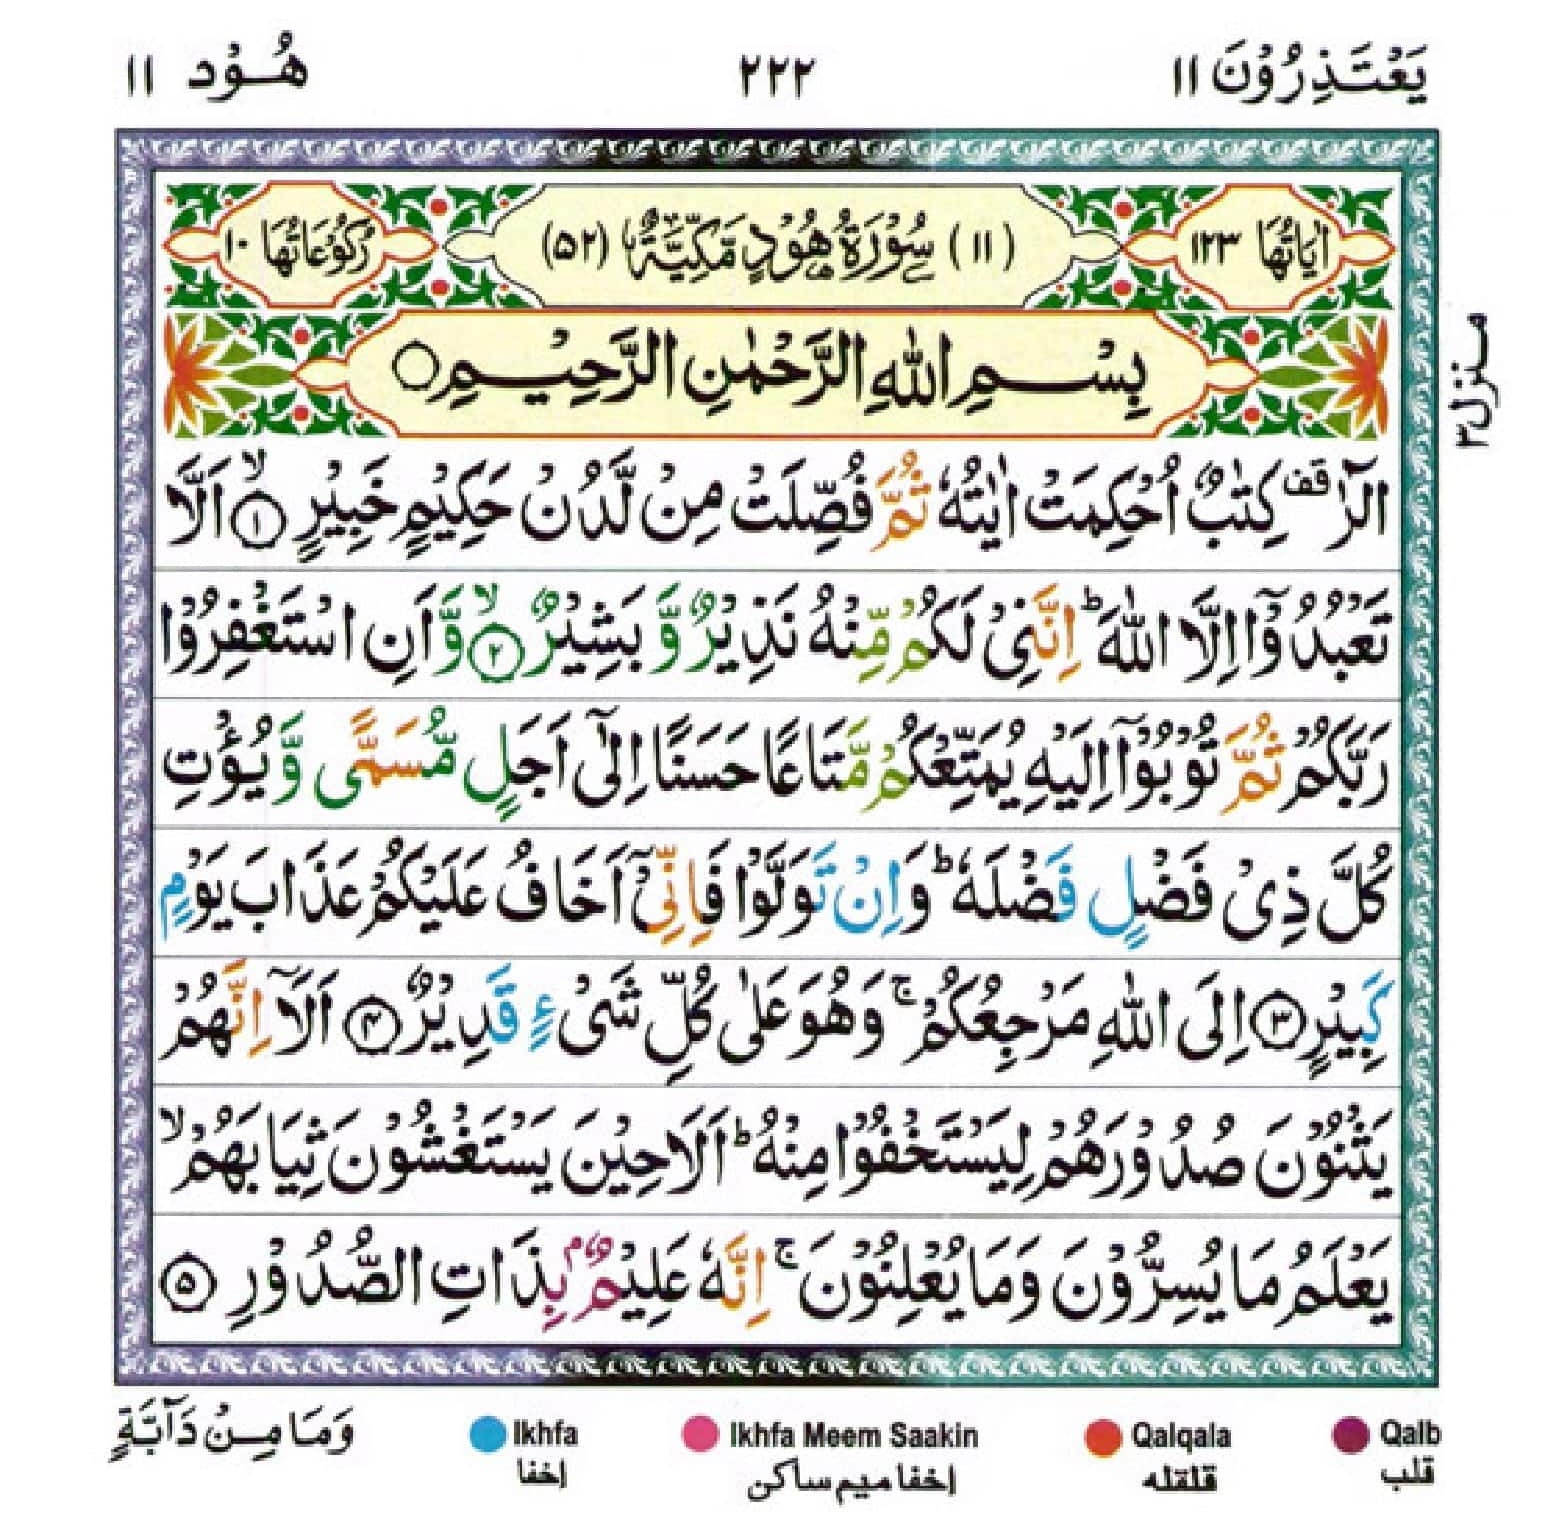 يَعۡتَذِرُوۡنَ ١١ ٢٢٢ هُوۡد ١١
اٰيَاتُهَا ١٢٣ (١١) سُوۡرَةُ هُوۡدٍ مَّكِّيَّةٌ (٥٢) رُكُوۡعَاتُهَا ١٠
بِسۡمِ اللّٰهِ الرَّحۡمٰنِ الرَّحِيۡمِ ○
الٓرٰ ࣞ كِتٰبٌ اُحۡكِمَتۡ اٰيٰتُهٗ ثُمَّ فُصِّلَتۡ مِنۡ لَّدُنۡ حَكِيۡمٍ خَبِيۡرٍ ۙ‏ ﴿١﴾ اَلَّا
تَعۡبُدُوۡۤا اِلَّا اللّٰهَ‌ ؕ اِنَّنِىۡ لَـكُمۡ مِّنۡهُ نَذِيۡرٌ وَّبَشِيۡرٌ ۙ‏ ﴿٢﴾ وَّاَنِ اسۡتَغۡفِرُوۡا
رَبَّكُمۡ ثُمَّ تُوۡبُوۡۤا اِلَيۡهِ يُمَتِّعۡكُمۡ مَّتَاعًا حَسَنًا اِلٰٓى اَجَلٍ مُّسَمًّى وَّ يُؤۡتِ
كُلَّ ذِىۡ فَضۡلٍ فَضۡلَهٗ‌ ؕ وَاِنۡ تَوَلَّوۡا فَاِنِّىۡۤ اَخَافُ عَلَيۡكُمۡ عَذَابَ يَوۡمٍ
كَبِيۡرٍ ﴿٣﴾ اِلَى اللّٰهِ مَرۡجِعُكُمۡ‌ۚ وَهُوَ عَلٰى كُلِّ شَىۡءٍ قَدِيۡرٌ ﴿٤﴾ اَلَاۤ اِنَّهُمۡ
يَثۡنُوۡنَ صُدُوۡرَهُمۡ لِيَسۡتَخۡفُوۡا مِنۡهُ‌ ؕ اَلَا حِيۡنَ يَسۡتَغۡشُوۡنَ ثِيَابَهُمۡ ۙ
يَعۡلَمُ مَا يُسِرُّوۡنَ وَمَا يُعۡلِنُوۡنَ‌ ۚ اِنَّهٗ عَلِيۡمٌۢ بِذَاتِ الصُّدُوۡرِ ﴿٥﴾
منزل ٣
وَمَا مِنۡ دَآبَّةٍ
Ikhfa Ikhfa Meem Saakin Qalqala Qalb
إخفا إخفا میم ساکن قلقله قلب